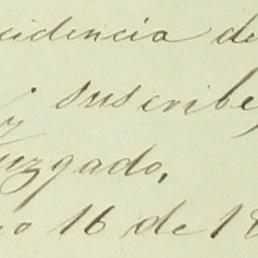 cidencia de
y suscribe,
uzgado,
o 16 de 18